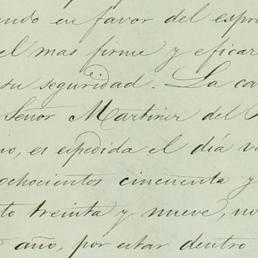 ando en favor del espre
el mas firme y eficaz
su seguridad. La ca
Señor Martinez del
io, es espedida el día v
ochocientos cincuenta y
to treinta y nueve, no
año, por estar dentro